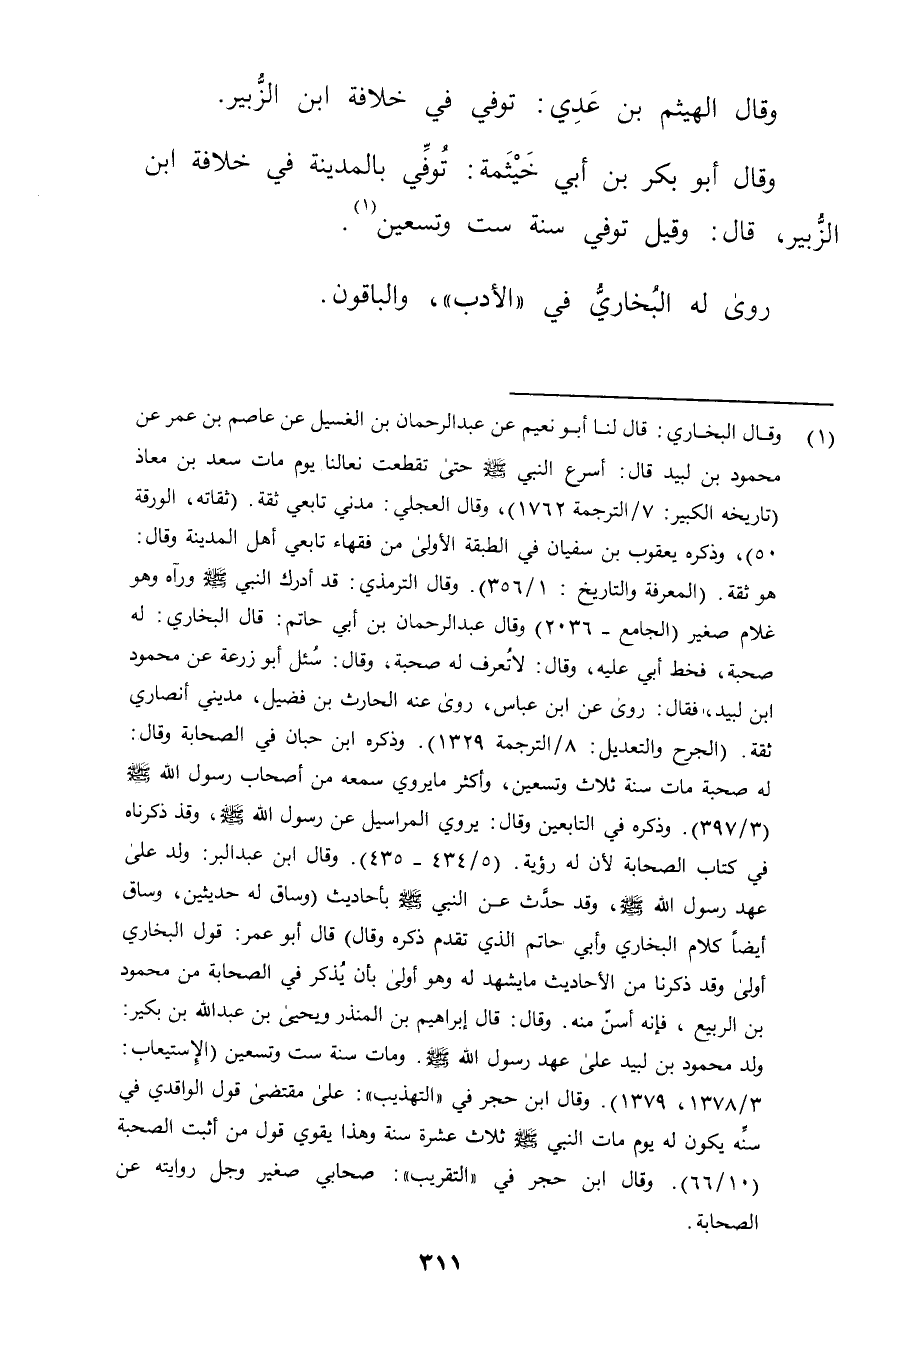 وقال الهيثم بن عَدِي: توفي في خلافة ابن الزُّبير.
وقال أبو بكر بن أبي خَيْثَمة: تُوفِّي بالمدينة في خلافة ابن
الزُّبير، قال: وقيل توفي سنة ست وتسعين(١).
روىٰ له البُخاريُّ في «الأدب»، والباقون.
(١) وقال البخاري: قال لنا أبو نعيم عن عبدالرحمان بن الغسيل عن عاصم بن عمر عن
محمود بن لبيد قال: أسرع النبي ﷺ حتىٰ تقطعت نعالنا يوم مات سعد بن معاذ
(تاريخه الكبير: ٧/الترجمة ١٧٦٢)، وقال العجلي: مدني تابعي ثقة. (ثقاته، الورقة
٥٠)، وذكره يعقوب بن سفيان في الطبقة الأولىٰ من فقهاء تابعي أهل المدينة وقال:
هو ثقة. (المعرفة والتاريخ : ٣٥٦/١). وقال الترمذي: قد أدرك النبي ﷺ ورآه وهو
غلام صغير (الجامع ـ ٢٠٣٦) وقال عبدالرحمان بن أبي حاتم: قال البخاري: له
صحبة، فخط أبي عليه، وقال: لاتُعرف له صحبة، وقال: سُئل أبو زرعة عن محمود
ابن لبيد، فقال: روىٰ عن ابن عباس، روىٰ عنه الحارث بن فضيل، مديني أنصاري
ثقة. (الجرح والتعديل: ٨/الترجمة ١٣٢٩). وذكره ابن حبان في الصحابة وقال:
له صحبة مات سنة ثلاث وتسعين، وأكثر مايروي سمعه من أصحاب رسول الله ﷺ
(٣٩٧/٣). وذكره في التابعين وقال: يروي المراسيل عن رسول الله ﷺ، وقذ ذكرناه
في كتاب الصحابة لأن له رؤية. (٤٣٤/٥ ـ ٤٣٥). وقال ابن عبدالبر: ولد علىٰ
عهد رسول الله ﷺ، وقد حدَّث عن النبي ﷺ بأحاديث (وساق له حديثين، وساق
أيضاً كلام البخاري وأبي حاتم الذي تقدم ذكره وقال) قال أبو عمر: قول البخاري
أولىٰ وقد ذكرنا من الأحاديث مايشهد له وهو أولىٰ بأن يُذكر في الصحابة من محمود
بن الربيع ، فإنه أسنّ منه. وقال: قال إبراهيم بن المنذر ويحيىٰ بن عبدالله بن بكير:
ولد محمود بن لبيد علىٰ عهد رسول الله ﷺ. ومات سنة ست وتسعين (الإستيعاب:
١٣٧٨/٣، ١٣٧٩). وقال ابن حجر في «التهذيب»: علىٰ مقتضىٰ قول الواقدي في
سنِّه يكون له يوم مات النبي ﷺ ثلاث عشرة سنة وهذا يقوي قول من أثبت الصحبة
(٦٦/١٠). وقال ابن حجر في «التقريب»: صحابي صغير وجل روايته عن
الصحابة.
٣١١